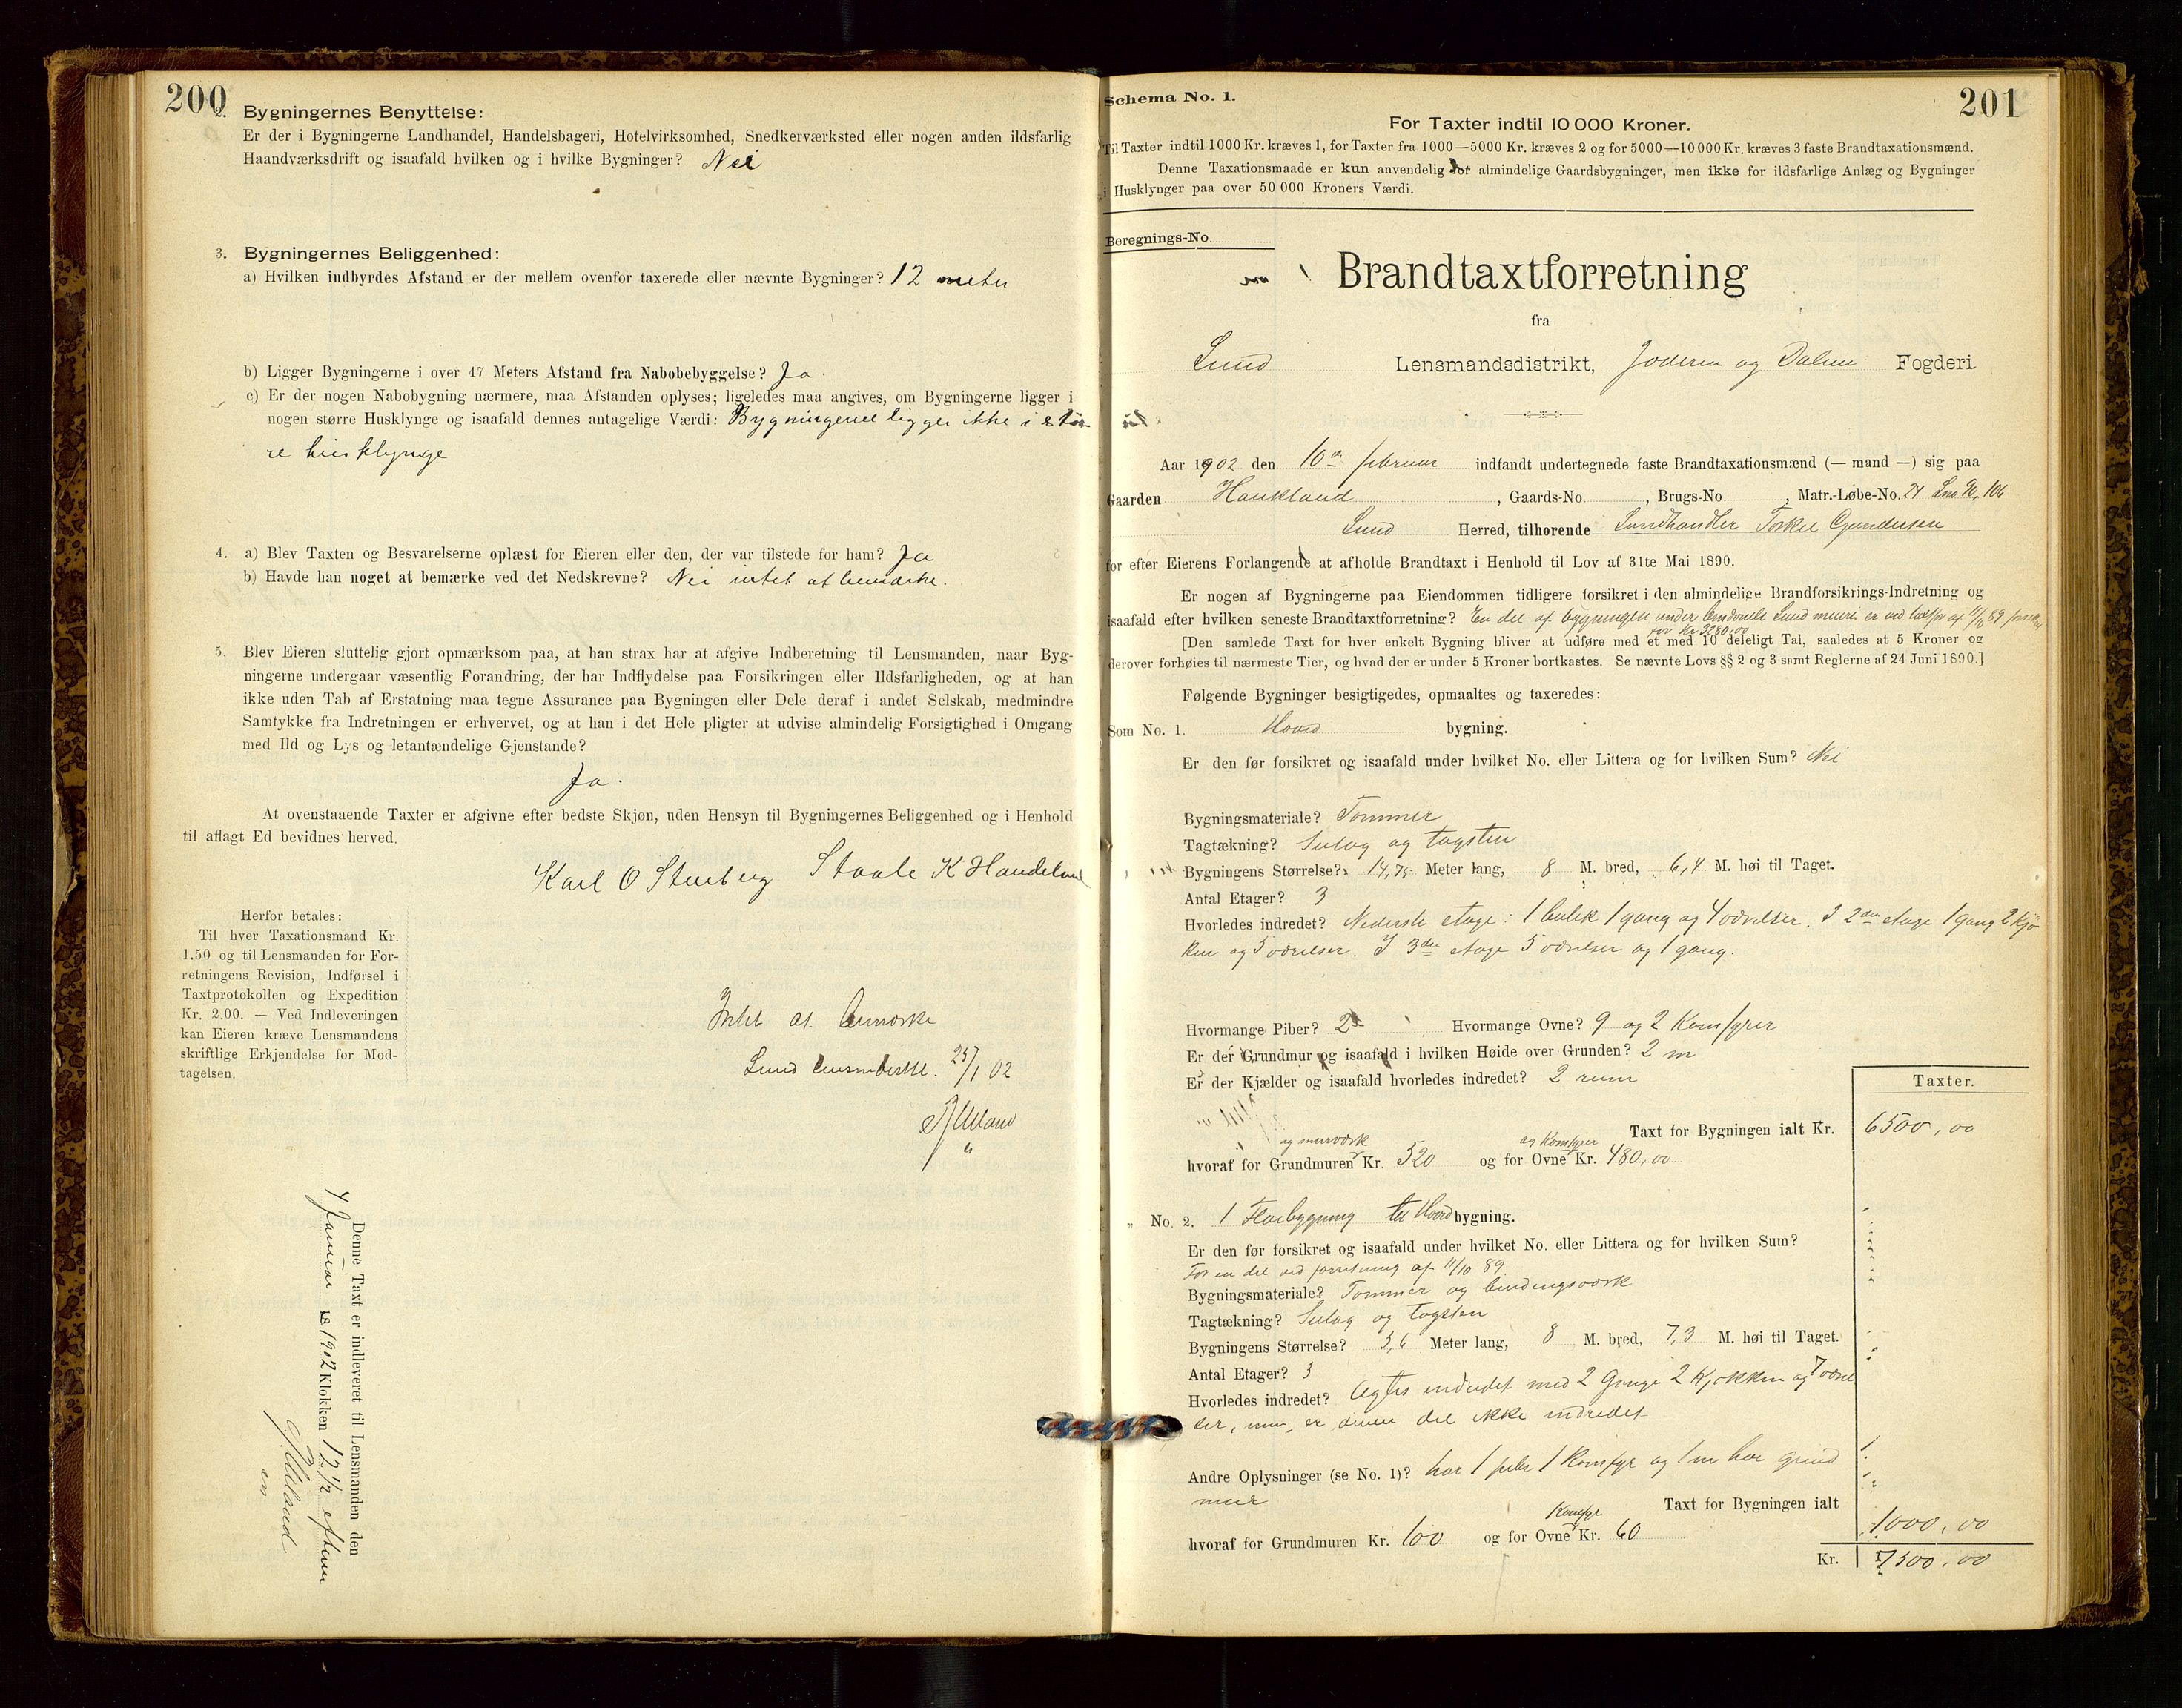 200
2. Bygningernes Benyttelse:
Er der i Bygningerne Landhandel, Handelsbageri, Hotelvirksomhed, Snedkerværksted eller nogen anden ildsfarlig
Haandværksdrift og isaafald hvilken og i hvilke Bygninger? Nei
3. Bygningernes Beliggenhed:
a) Hvilken indbyrdes Afstand er der mellem ovenfor taxerede eller nævnte Bygninger? 12 meter
b) Ligger Bygningerne i over 47 Meters Afstand fra Nabobebyggelse? Ja.
c) Er der nogen Nabobygning nærmere, maa Afstanden oplyses; ligeledes maa angives, om Bygningerne ligger i
nogen større Husklynge og isaafald dennes antagelige Værdi: Bygningerne ligger ikke i stør-
re husklynge
4. a) Blev Taxten og Besvarelserne oplæst for Eieren eller den, der var tilstede for ham? Ja
b) Havde han noget at bemærke ved det Nedskrevne? Nei intet at bemærke.
5. Blev Eieren sluttelig gjort opmærksom paa, at han strax har at afgive Indberetning til Lensmanden, naar Byg-
ningerne undergaar væsentlig Forandring, der har Indflydelse paa Forsikringen eller Ildsfarligheden, og at han
ikke uden Tab af Erstatning maa tegne Assurance paa Bygningen eller Dele deraf i andet Selskab, medmindre
Samtykke fra Indretningen er erhvervet, og at han i det Hele pligter at udvise almindelig Forsigtighed i Omgang
med Ild og Lys og letantændelige Gjenstande?
Ja.
At ovenstaaende Taxter er afgivne efter bedste Skjøn, uden Hensyn til Bygningernes Beliggenhed og i Henhold
til aflagt Ed bevidnes herved.
Karl O Stenberg Staale K Handeland
Herfor betales:
Til hver Taxationsmand Kr.
1.50 og til Lensmanden for For-
retningens Revision, Indførsel i
Taxtprotokollen og Expedition
Kr. 2.00. — Ved Indleveringen
kan Eieren kræve Lensmandens
skriftlige Erkjendelse for Mod-
tagelsen.
Intet at bemærke
Lund 25/1 02
Denne Taxt er indleveret til Lensmanden den
4 Januar 1902 Klokken 12 1/2 efterm
201
Schema No. 1.
For Taxter indtil 10 000 Kroner.
Til Taxter indtil 1000 Kr. kræves 1, for Taxter fra 1000—5000 Kr. kræves 2 og for 5000—10 000 Kr. kræves 3 faste Brandtaxationsmænd.
Denne Taxationsmaade er kun anvendelig for almindelige Gaardsbygninger, men ikke for ildsfarlige Anlæg og Bygninger
i Husklynger paa over 50 000 Kroners Værdi.
Beregnings-No.
Brandtaxtforretning
fra
Lund Lensmandsdistrikt, Jæderen og Dalene Fogderi.
Aar 1902 den 10de februar indfandt undertegnede faste Brandtaxationsmænd (— mand —) sig paa
Gaarden Haukland, Gaards-No. , Brugs-No. , Matr.-Løbe-No. 24 Lno 106
Lund Herred, tilhørende Landhandler Torkel Gundersen
for efter Eierens Forlangende at afholde Brandtaxt i Henhold til Lov af 31te Mai 1890.
Er nogen af Bygningerne paa Eiendommen tidligere forsikret i den almindelige Brandforsikrings-Indretning og
isaafald efter hvilken seneste Brandtaxtforretning? En del af bygningen under Lund er ved af 11/10 89
for Kr 3280,00
[Den samlede Taxt for hver enkelt Bygning bliver at udføre med et med 10 deleligt Tal, saaledes at 5 Kroner og
derover forhøies til nærmeste Tier, og hvad der er under 5 Kroner bortkastes. Se nævnte Lovs §§ 2 og 3 samt Reglerne af 24 Juni 1890.]
Følgende Bygninger besigtigedes, opmaaltes og taxeredes:
Som No. 1. Hoved bygning.
Er den før forsikret og isaafald under hvilket No. eller Littera og for hvilken Sum? Nei
Bygningsmateriale? Tømmer
Tagtækning? Sulag og tagsten
Bygningens Størrelse? 14,75 Meter lang, 8 M. bred, 6,4 M. høi til Taget.
Antal Etager? 3
Hvorledes indredet? Nederste etage: 1 butik 1 gang og 4 værelser. I 2den etage 1 gang 2 kjø-
ken og 5 værelser. I 3die etage 5 værelser og 1 gang.
Hvormange Piber? 2 Hvormange Ovne? 9 og 2 Komfyrer
Er der Grundmur og isaafald i hvilken Høide over Grunden? 2 m
Er der Kjælder og isaafald hvorledes indredet? 2 rum
Taxter.
Taxt for Bygningen ialt Kr. 6500,00
og murværk og Komfyrer
hvoraf for Grundmuren Kr. 520 og for Ovne Kr. 480,00
" No. 2. 1 Fløibygning til Hovedbygning.
Er den før forsikret og isaafald under hvilket No. eller Littera og for hvilken Sum?
For en del ved forretning af 11/10 89
Bygningsmateriale? Tømmer og bindingsværk
Tagtækning? Sulag og tagsten
Bygningens Størrelse? 5,6 Meter lang, 8 M. bred, 7,3 M. høi til Taget.
Antal Etager? 3
Hvorledes indredet? Agtes indredet med 2 Gange 2 Kjøkken og 7 værel
ser, men er denne del ikke indredet
Andre Oplysninger (se No. 1)? har 1 pibe 1 Komfyr og 1 m høi grund
mur
Taxt for Bygningen ialt 1000,00
Komfyr
hvoraf for Grundmuren Kr. 100 og for Ovne Kr. 60
Kr. 7500,00